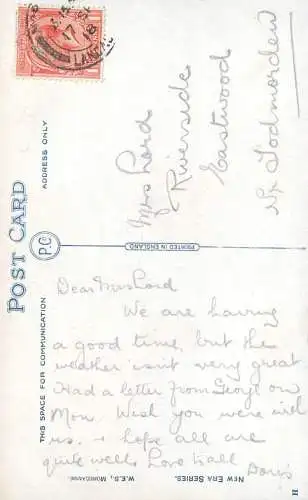 POST CARD
P.C.
THIS SPACE FOR COMMUNICATION
ADDRESS ONLY
PRINTED IN ENGLAND
Mrs Lord
Riverside
Eastwood
Nr Todmorden
Dear Mrs Lord
We are having
a good time, but the
weather isn't very great
Had a letter from Geoff on
Mon. Wish you were with
us. & hope all are
quite well. Love to all
Doris
W.E.B., MORECAMBE.
NEW ERA SERIES.
II